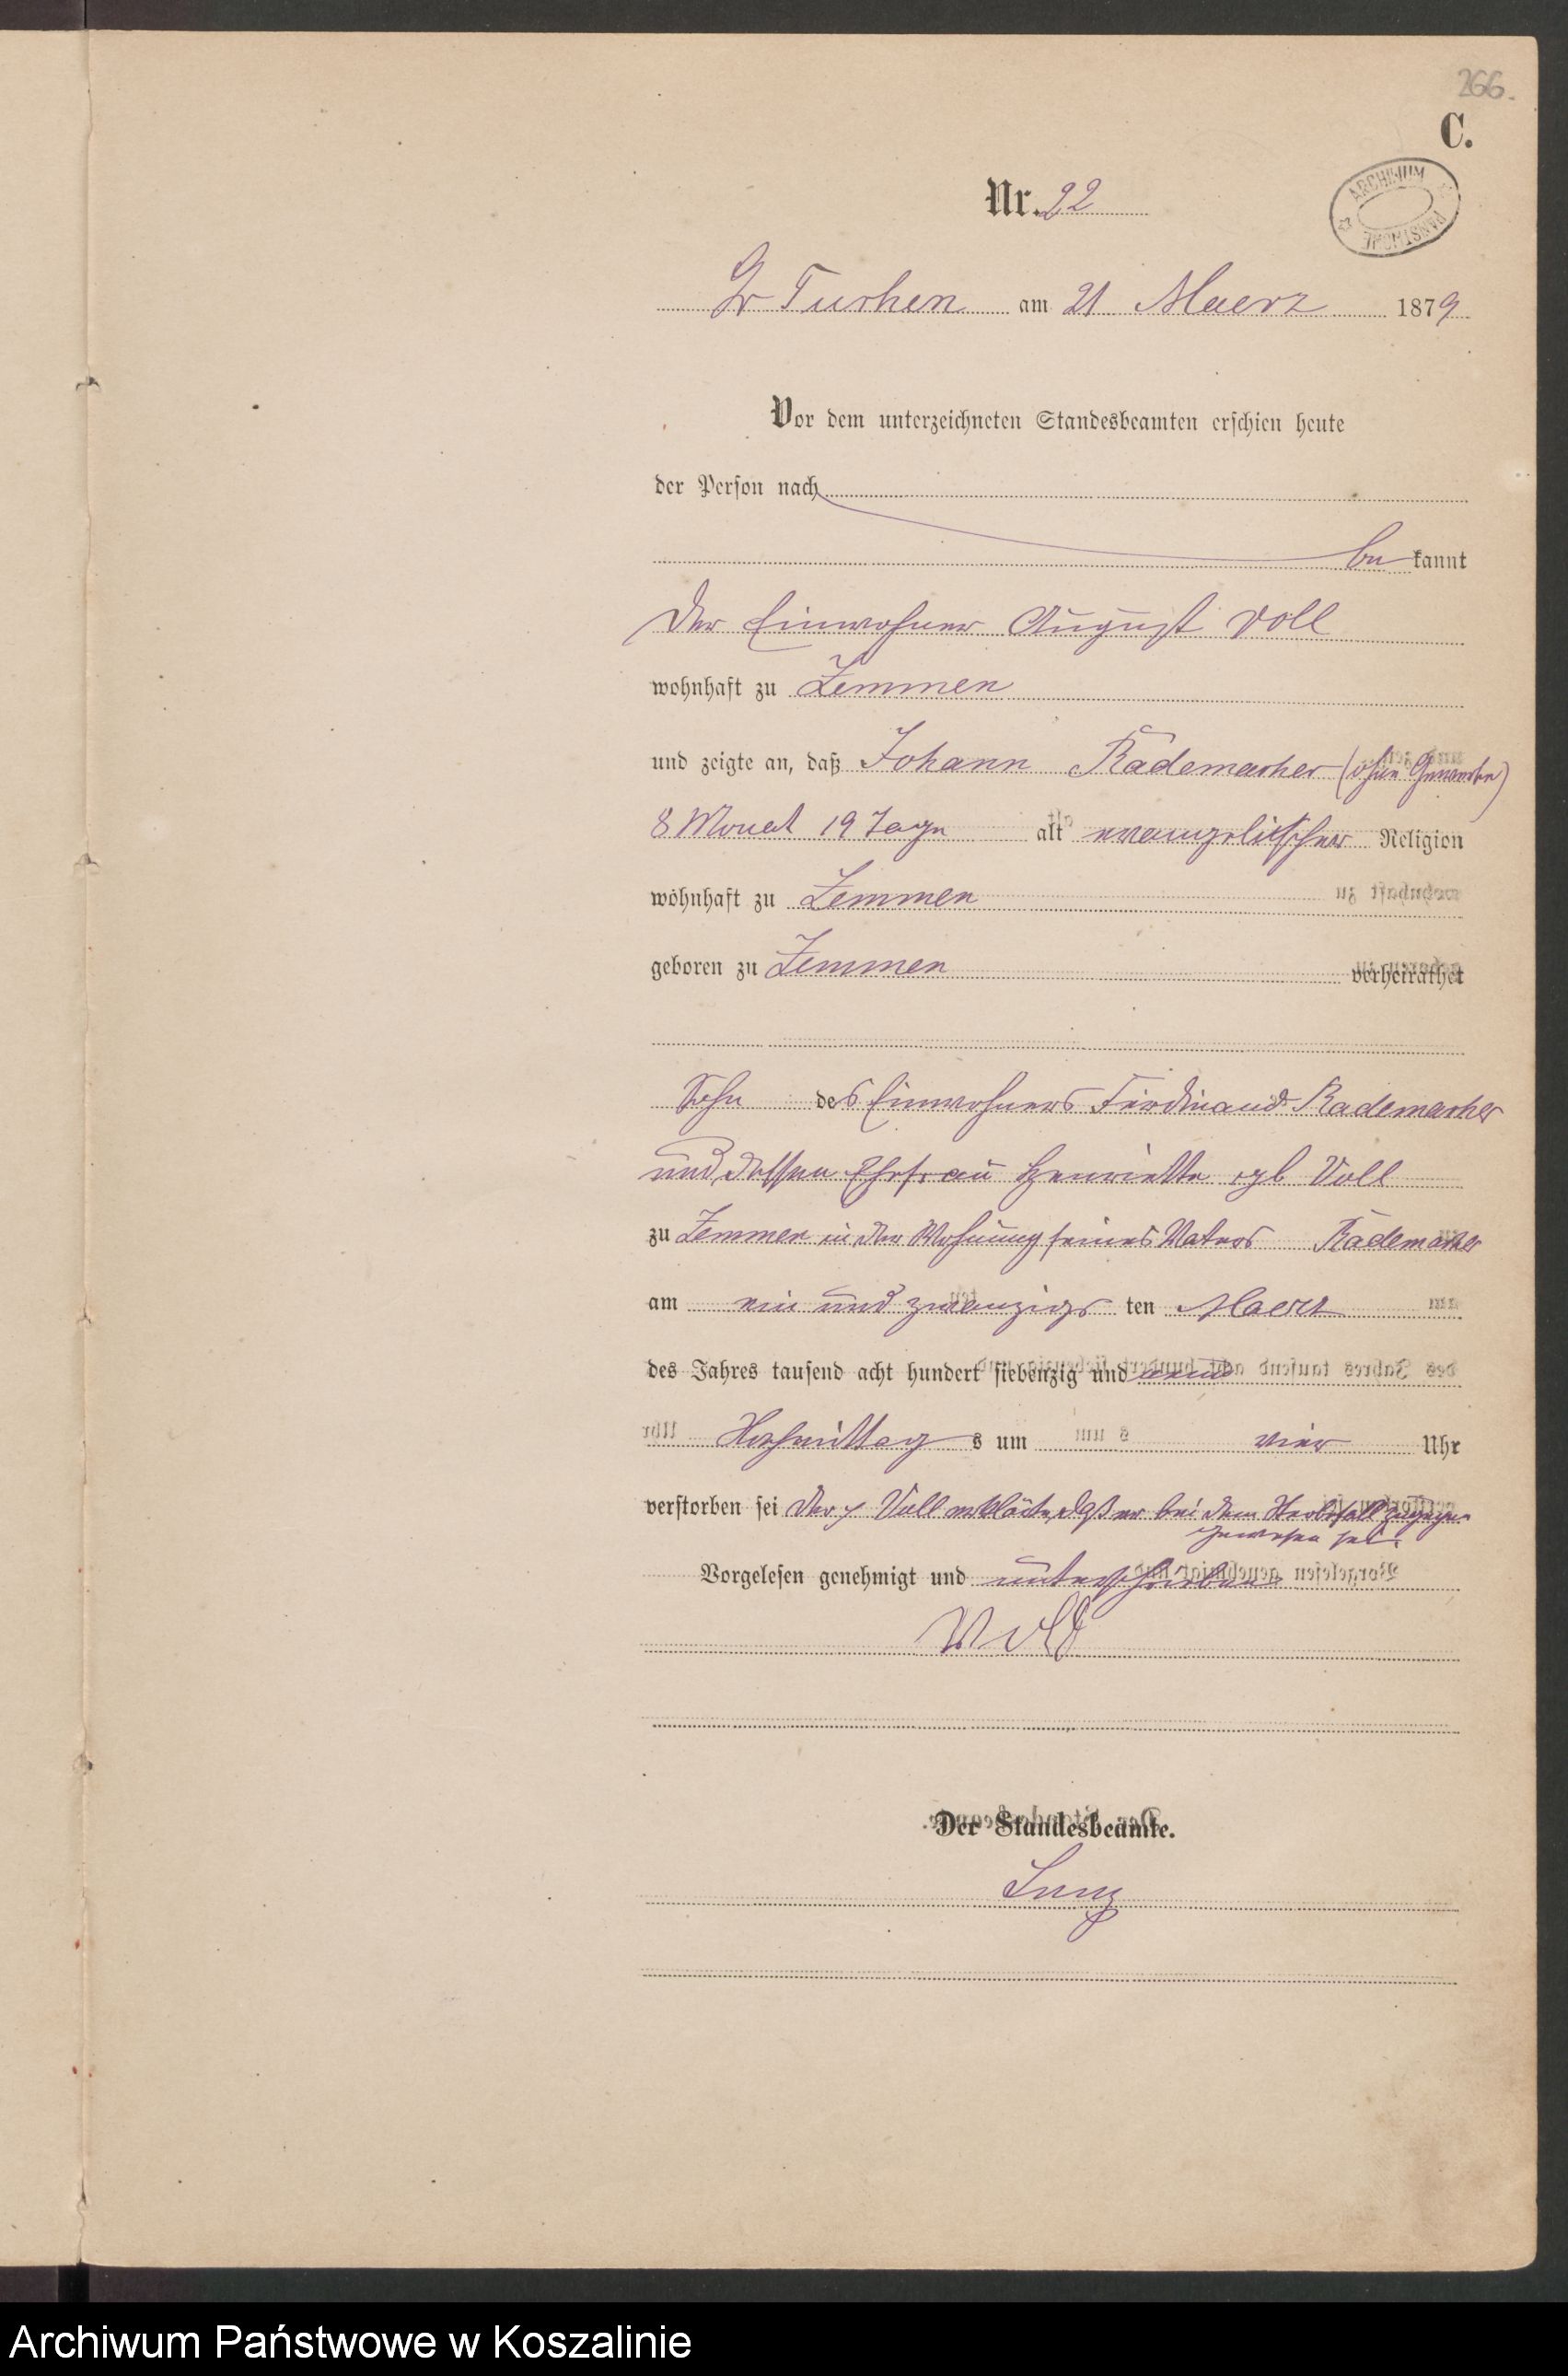 266.
C.
ARCHIWUM PAŃSTWOWE
Nr. 22
Gr Tuchen am 21 Maerz 1879
Vor dem unterzeichneten Standesbeamten erschien heute
der Person nach
be kannt
der Einwohner August Voll
wohnhaft zu Zemmen
und zeigte an, daß Johann Rademacher (ohne Gewerbe)
8 Monat 19 Tage alt evangelischer Religion
wohnhaft zu Zemmen
geboren zu Zemmen verheirathet
Sohn des Einwohners Ferdinand Rademacher
und dessen Ehefrau Henriette Voll
zu Zemmen in der Wohnung seines Vaters Rademacher
am ein und zwanzigs ten Maerz
des Jahres tausend acht hundert siebenzig und neun
s um vier Uhr
verstorben sei der Voll erklärte, daß er bei dem Sterbefall zugegen
gewesen sei.
Vorgelesen genehmigt und unterschrieben
Voll
Der Standesbeamte.
Archiwum Państwowe w Koszalinie